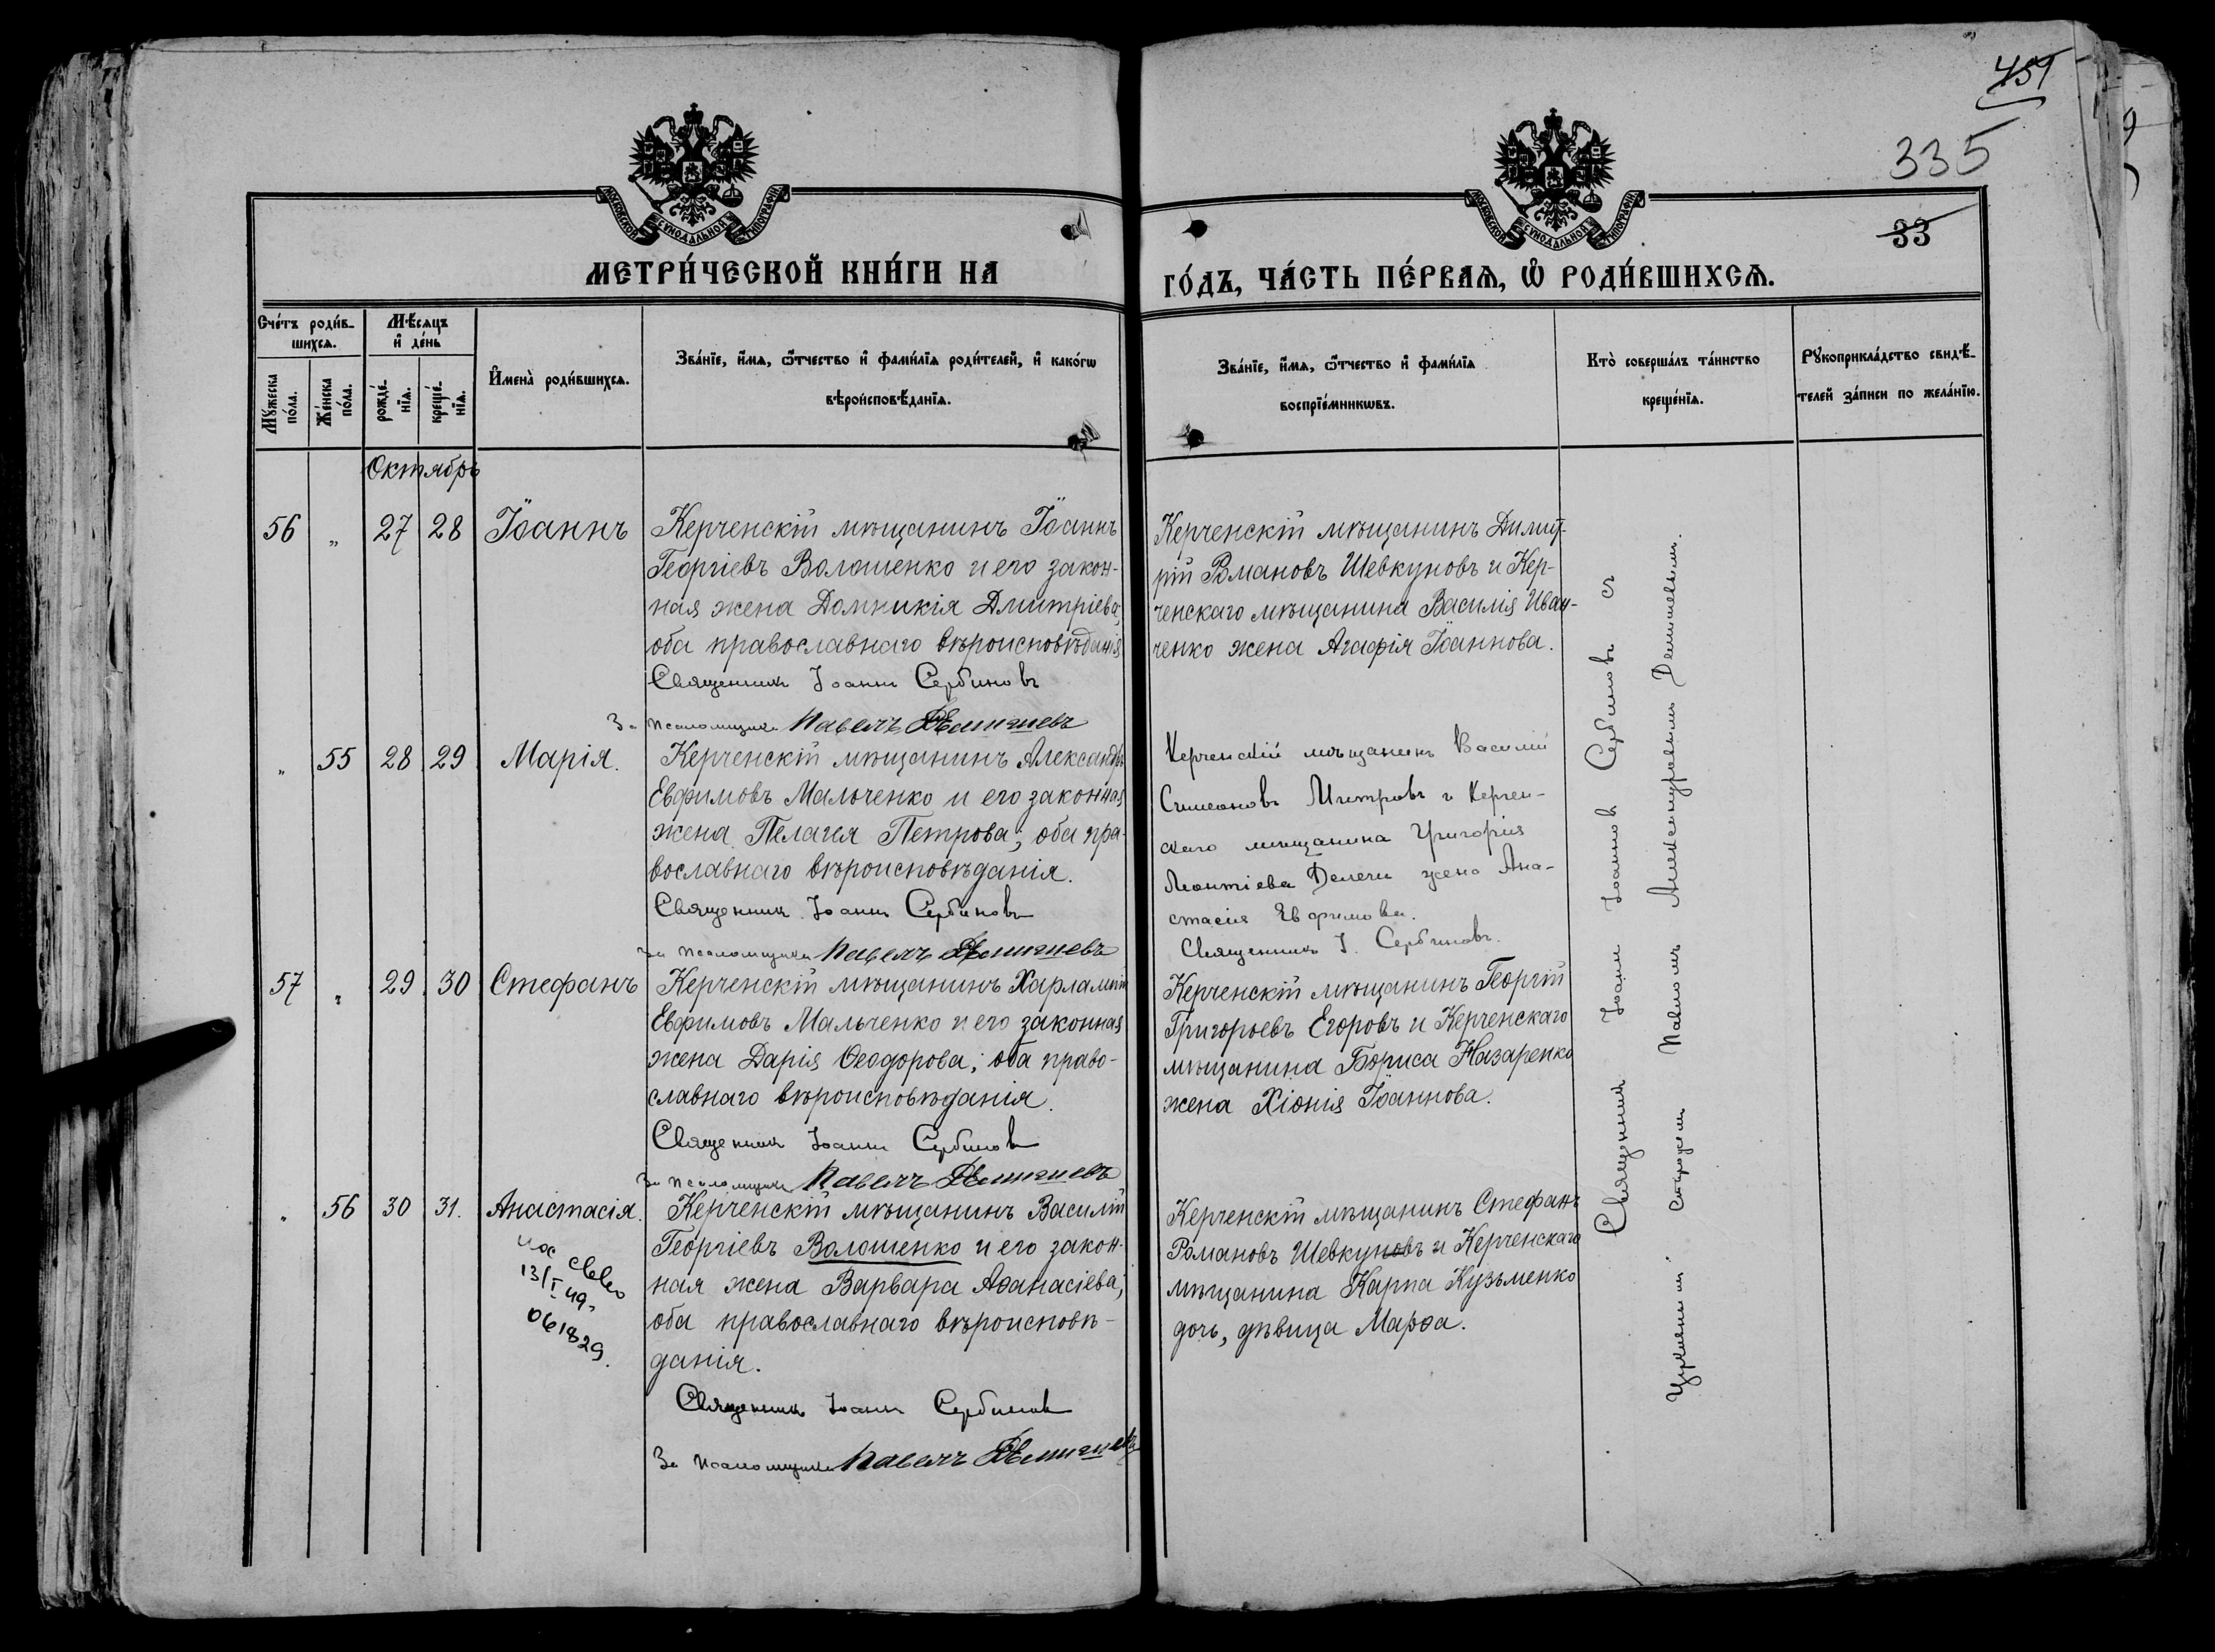 459
335
33
МОСКОВСКОЙ СУНОДАЛЬНОЙ ТИПОГРАФІИ
МОСКОВСКОЙ СУНОДАЛЬНОЙ ТИПОГРАФІИ
МЕТРИ́ЧЕСКОЙ КНИ́ГИ НА
ГО́ДЪ, ЧА́СТЬ ПЕ́РВАѦ, Ѡ҆ РОДИ́ВШИХСѦ.
Сче́тъ роди́в-
шихсѧ.
Мꙋ́жеска
по́ла.
Же́нска
по́ла.
Мѣ́сѧцъ
и҆ де́нь
рожде́-
нїѧ.
креще́-
нїѧ.
И҆мена̀ роди́вшихсѧ.
Зва́нїе, и҆́мѧ, ѻ҆́тчество и҆ фами́лїѧ роди́телей, и҆ како́гѡ
вѣроисповѣ́данїѧ.
Зва́нїе, и҆́мѧ, ѻ҆́тчество и҆ фами́лїѧ
воспрїе́мникѡвъ.
Кто̀ соверша́лъ та́инство
креще́нїѧ.
Рꙋкоприкла́дство свидѣ́-
телей за́писи по жела́нїю.
Октябрь
56 „ 27 28 Іоаннъ
Керченскій мѣщанинъ Іоаннъ
Георгіевъ Волошенко и его закон-
ная жена Домникія Дмитріева,
оба православнаго вѣроисповѣданія
Священникъ Іоаннъ Сербиновъ
За псаломщика Павелъ
Керченскій мѣщанинъ Димит-
рій Романовъ Шевкуновъ и Кер-
ченскаго мѣщанина Василія Иван-
ченко жена Агафія Іоаннова.
„ 55 28 29 Марія.
Керченскій мѣщанинъ Александръ
Евфимовъ Мальченко и его законная
жена Пелагея Петрова; оба пра-
вославнаго вѣроисповѣданія.
Священникъ Іоаннъ Сербиновъ
За псаломщика Павелъ
Керченскій мѣщанинъ Василій
Симеоновъ Митровъ и Керчен-
скаго мѣщанина Григорія
Леонтіева жена Ана-
стасія Евфимова.
Священникъ І. Сербиновъ.
57 „ 29 30 Стефанъ
Керченскій мѣщанинъ Харлампій
Евфимовъ Мальченко и его законная
жена Дарія Ѳеодорова; оба право-
славнаго вѣроисповѣданія.
Священникъ Іоаннъ Сербиновъ
За псаломщика Павелъ
Керченскій мѣщанинъ Георгій
Григорьевъ Егоровъ и Керченскаго
мѣщанина Бориса Назаренко
жена Хіонія Іоаннова.
„ 56 30 31. Анастасія.
13/I 49.
061829.
Керченскій мѣщанинъ Василій
Георгіевъ Волошенко и его закон-
ная жена Варвара Аѳанасіева;
оба православнаго вѣроисповѣ-
данія.
Священникъ Іоаннъ Сербиновъ
За псаломщика Павелъ
Керченскій мѣщанинъ Стефанъ
Романовъ Шевкуновъ и Керченскаго
мѣщанина Карпа Кузьменко
дочь, дѣвица Марѳа.
Священникъ Іоаннъ Іоанновъ Сербиновъ съ
Церковнымъ старостою Павломъ